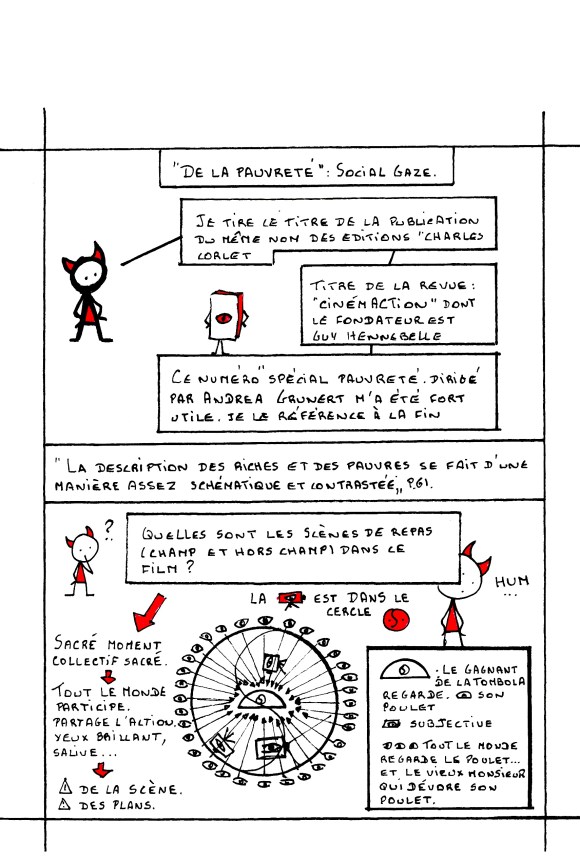 "DE LA PAUVRETÉ": SOCIAL GAZE.
JE TIRE LE TITRE DE LA PUBLICATION
DU MÊME NON DES EDITIONS "CHARLES
CORLET
TITRE DE LA REVUE :
"CINÉMACTION" DONT
LE FONDATEUR EST
GUY HENNEBELLE
CE NUMÉRO "SPÉCIAL PAUVRETÉ. DIRIGÉ
PAR ANDREA GRUNERT M'A ÉTÉ FORT
UTILE. JE LE RÉFÉRENCE À LA FIN
"LA DESCRIPTION DES RICHES ET DES PAUVRES SE FAIT D'UNE
MANIÈRE ASSEZ SCHÉMATIQUE ET CONTRASTÉE,, P.61.
?
QUELLES SONT LES SCÈNES DE REPAS
(CHAMP ET HORS CHAMP) DANS CE
FILM ?
HUM
...
LA EST DANS LE
CERCLE
SACRÉ MOMENT
COLLECTIF SACRÉ.
TOUT LE MONDE
PARTICIPE.
PARTAGE L'ACTION.
YEUX BRILLANT,
SALIVE...
DE LA SCÈNE.
DES PLANS.
. LE GAGNANT
DE LA TOMBOLA
REGARDE. SON
POULET
SUBJECTIVE
TOUT LE MONDE
REGARDE LE POULET...
ET LE VIEUX MONSIEUR
QUI DÉVORE SON
POULET.